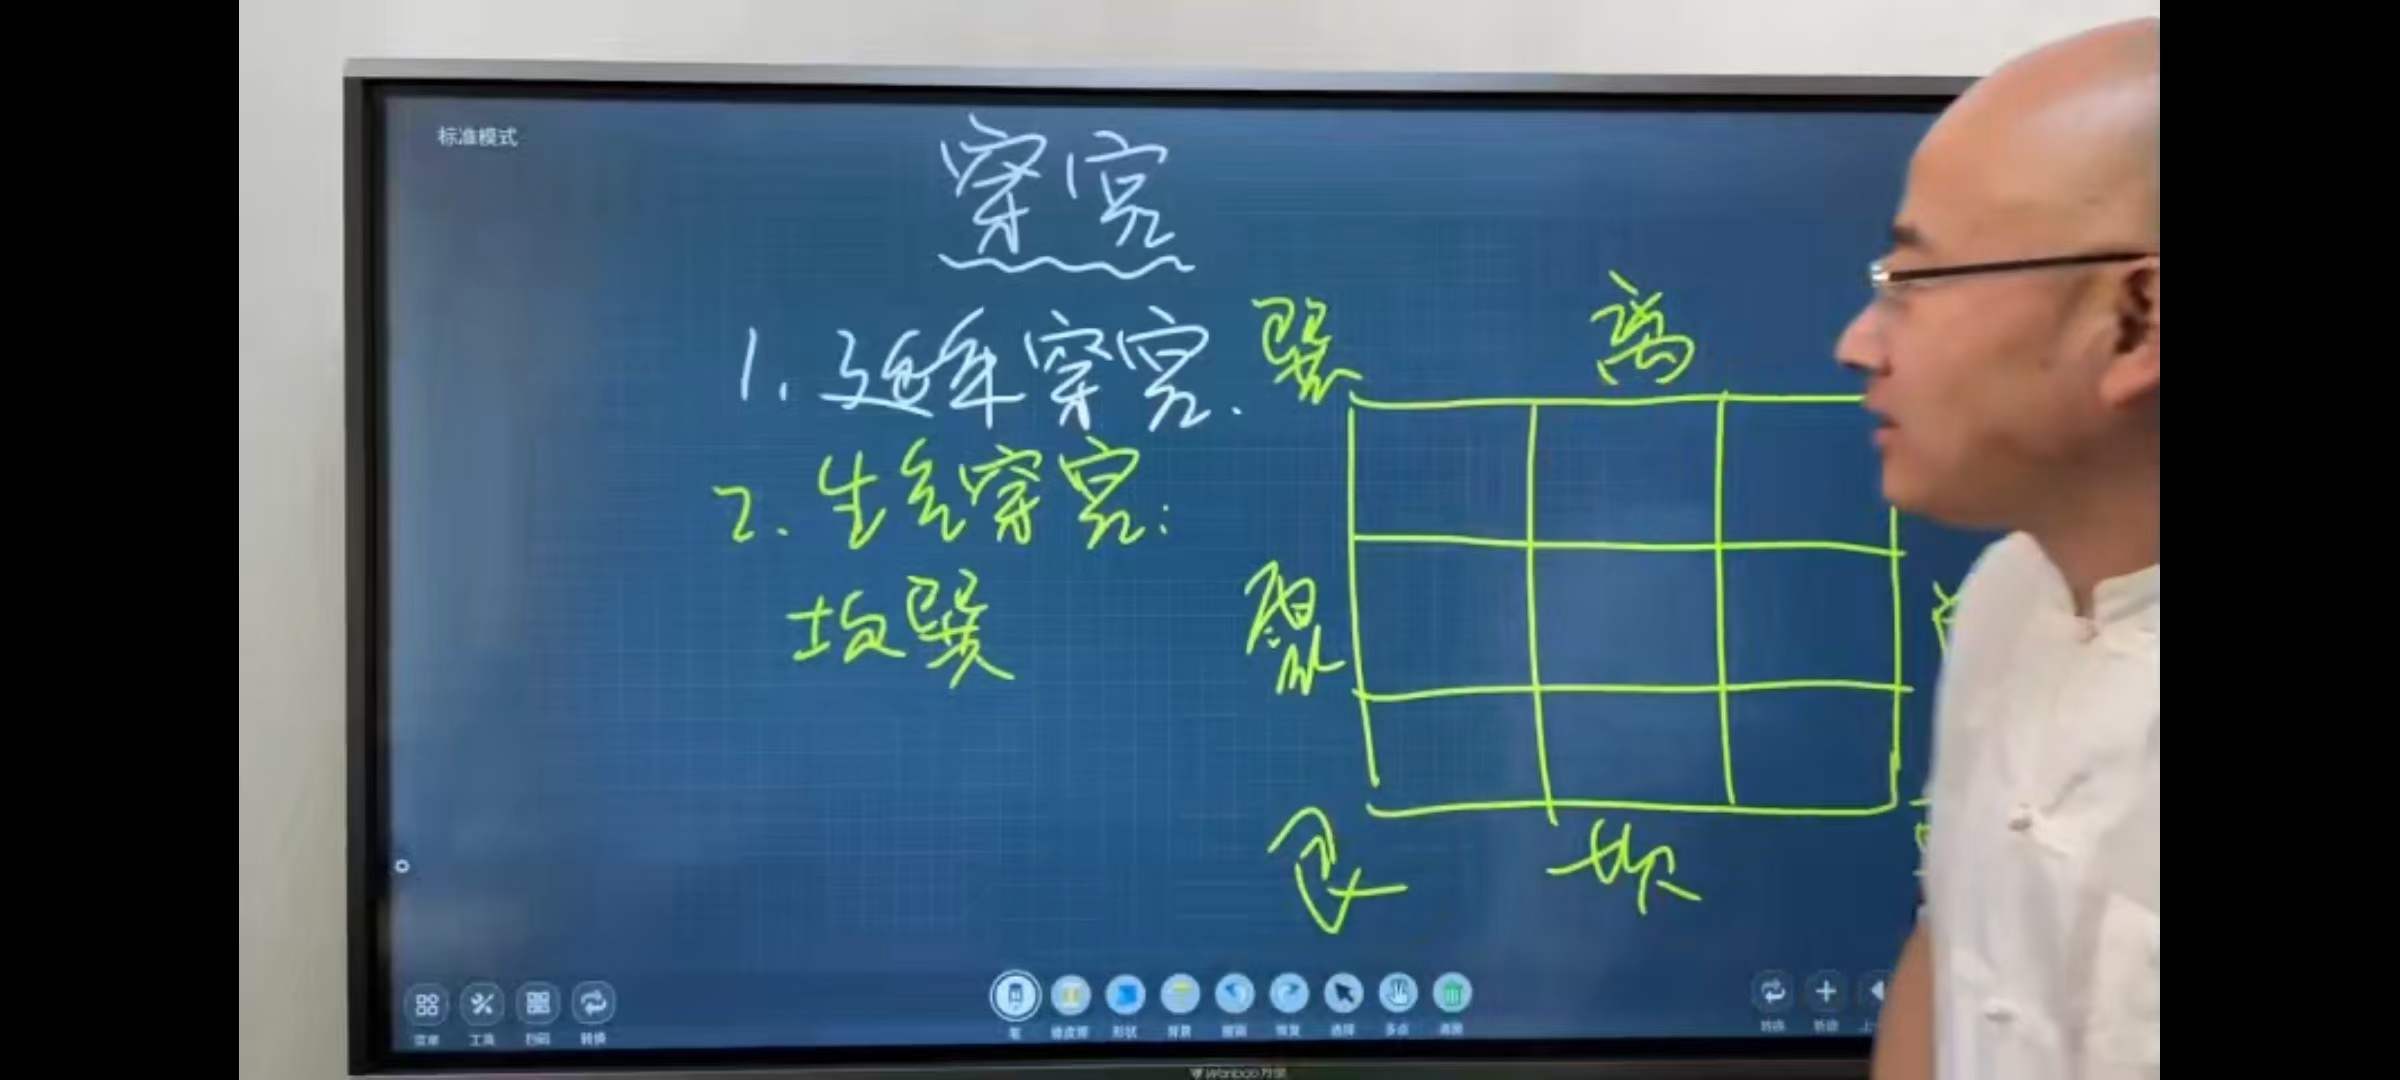 标准模式
穿宫
1. 延年穿宫.
2. 生气穿宫:
坎巽
巽
离
震
艮
坎
菜单 工具 扫码 转换
笔 橡皮擦 形状 背景 撤销 恢复 选择 多点 清除
转换 新建 上一